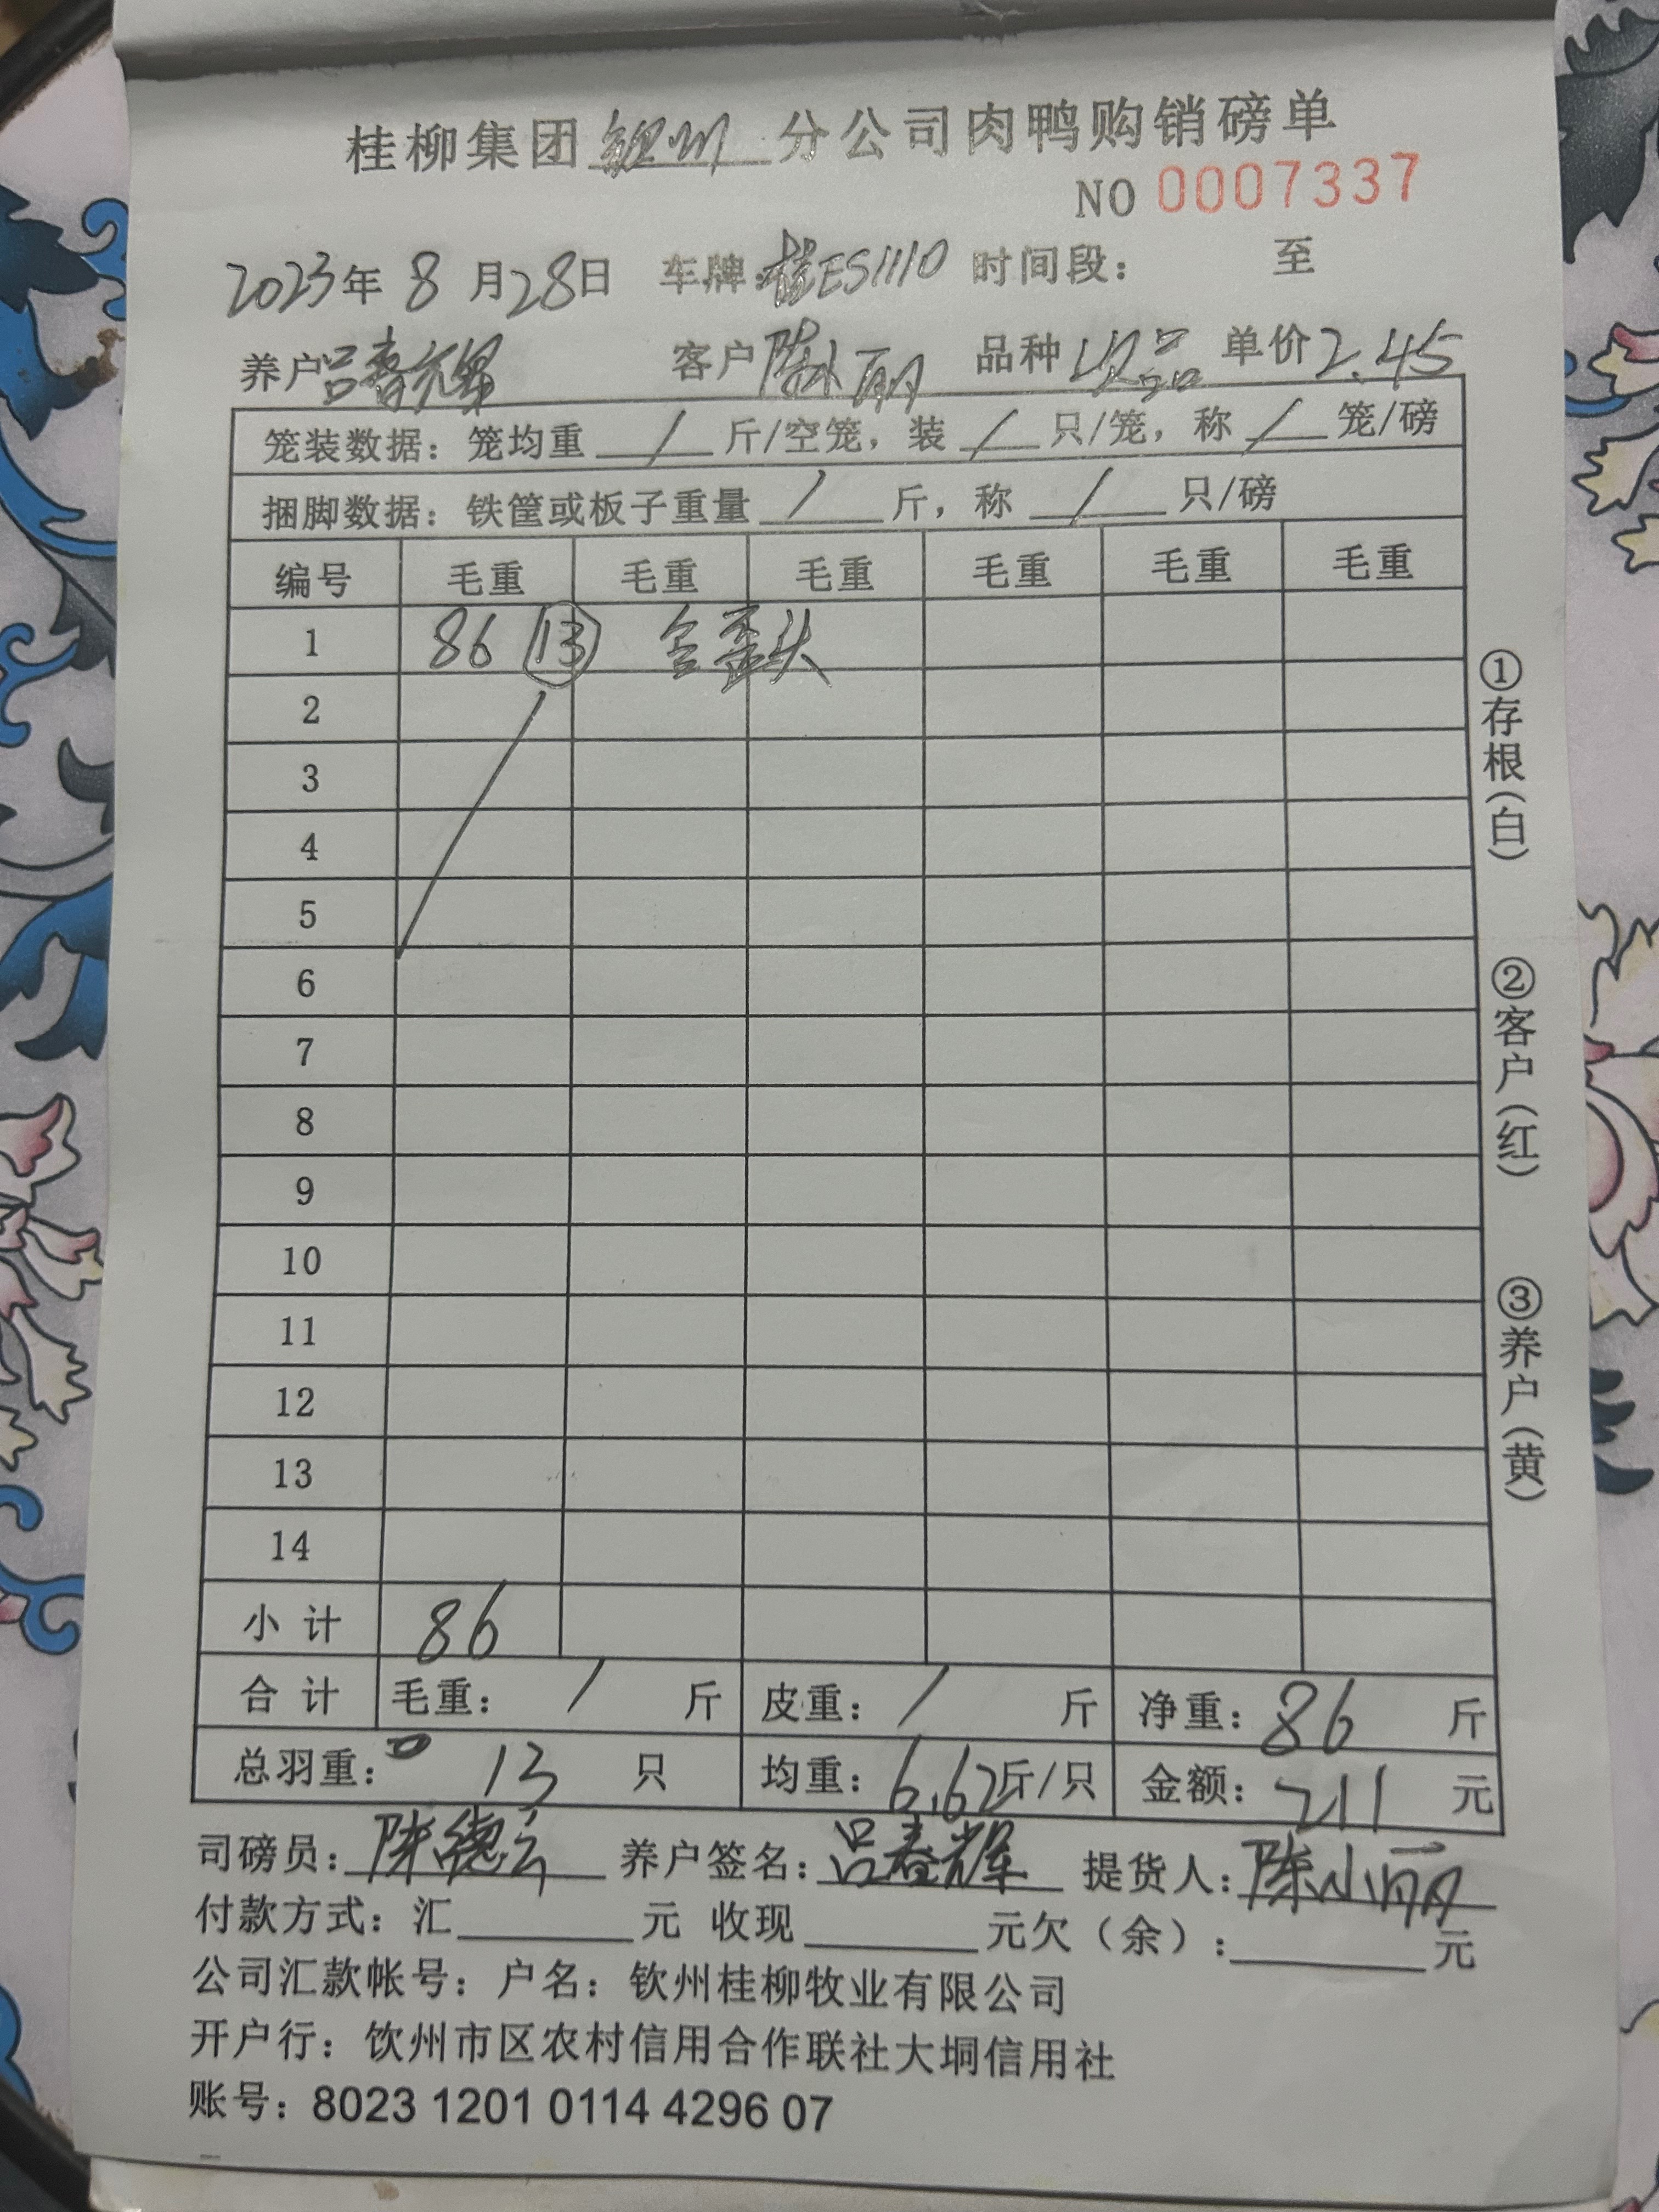 桂柳集团 钦州 分公司肉鸭购销磅单
NO 0007337
2023年 8 月28日 车牌:桂ES1110 时间段: 至
养户吕春辉 客户陈小丽 品种次品 单价2.45
笼装数据: 笼均重 / 斤/空笼, 装 / 只/笼, 称 / 笼/磅
捆脚数据: 铁筐或板子重量 / 斤, 称 / 只/磅
编号 毛重 毛重 毛重 毛重 毛重 毛重
1 86 13 含歪头
2
3
4
5
6
7
8
9
10
11
12
13
14
小计 86
合计 毛重: / 斤 皮重: / 斤 净重: 86 斤
总羽重: 13 只 均重: 6.62斤/只 金额: 211 元
司磅员: 陈德云 养户签名: 吕春辉 提货人: 陈小丽
付款方式: 汇 元 收现 元欠(余): 元
公司汇款帐号: 户名: 钦州桂柳牧业有限公司
开户行: 饮州市区农村信用合作联社大垌信用社
账号: 8023 1201 0114 4296 07
①存根(白)
②客户(红)
③养户(黄)